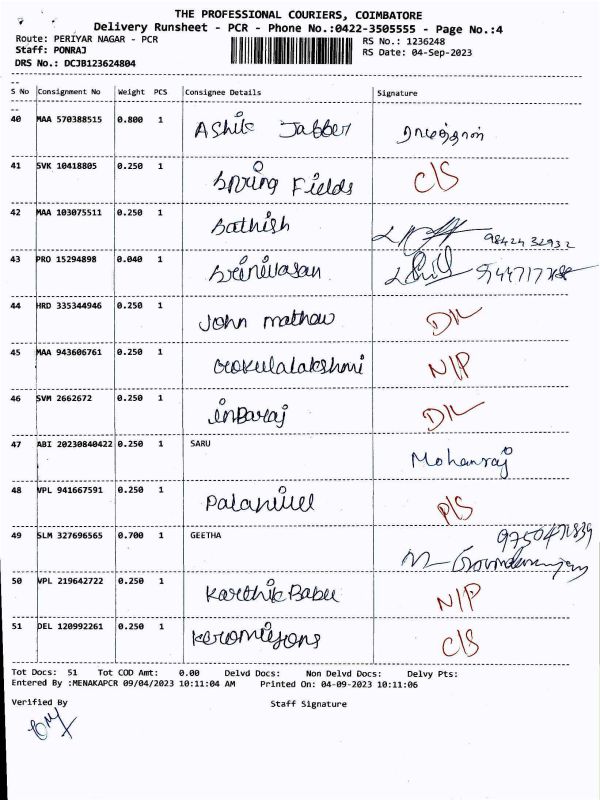 THE PROFESSIONAL COURIERS, COIMBATORE
Delivery Runsheet - PCR - Phone No.:0422-3505555 - Page No.:4
Route: PERIYAR NAGAR - PCR RS No.: 1236248
Staff: PONRAJ RS Date: 04-Sep-2023
DRS No.: DCJB123624804
S No Consignment No Weight PCS Consignee Details Signature
40 MAA 570388515 0.800 1 Ashik Jabber
41 SVK 10418805 0.250 1 Spring Fields C/S
42 MAA 103075511 0.250 1 Sathish
43 PRO 15294898 0.040 1 Srinivasan
44 HRD 335344946 0.250 1 John mathew D/L
45 MAA 943606761 0.250 1 Gokulalakshmi N/P
46 SVM 2662672 0.250 1 inbaraj D/L
47 ABI 20230840422 0.250 1 SARU Mohanraj
48 VPL 941667591 0.250 1 Palanivel P/S
49 SLM 327696565 0.700 1 GEETHA
50 VPL 219642722 0.250 1 Karthik Babu N/P
51 DEL 120992261 0.250 1 C/S
Tot Docs: 51 Tot COD Amt: 0.00 Delvd Docs: Non Delvd Docs: Delvy Pts:
Entered By :MENAKAPCR 09/04/2023 10:11:04 AM Printed On: 04-09-2023 10:11:06
Verified By Staff Signature